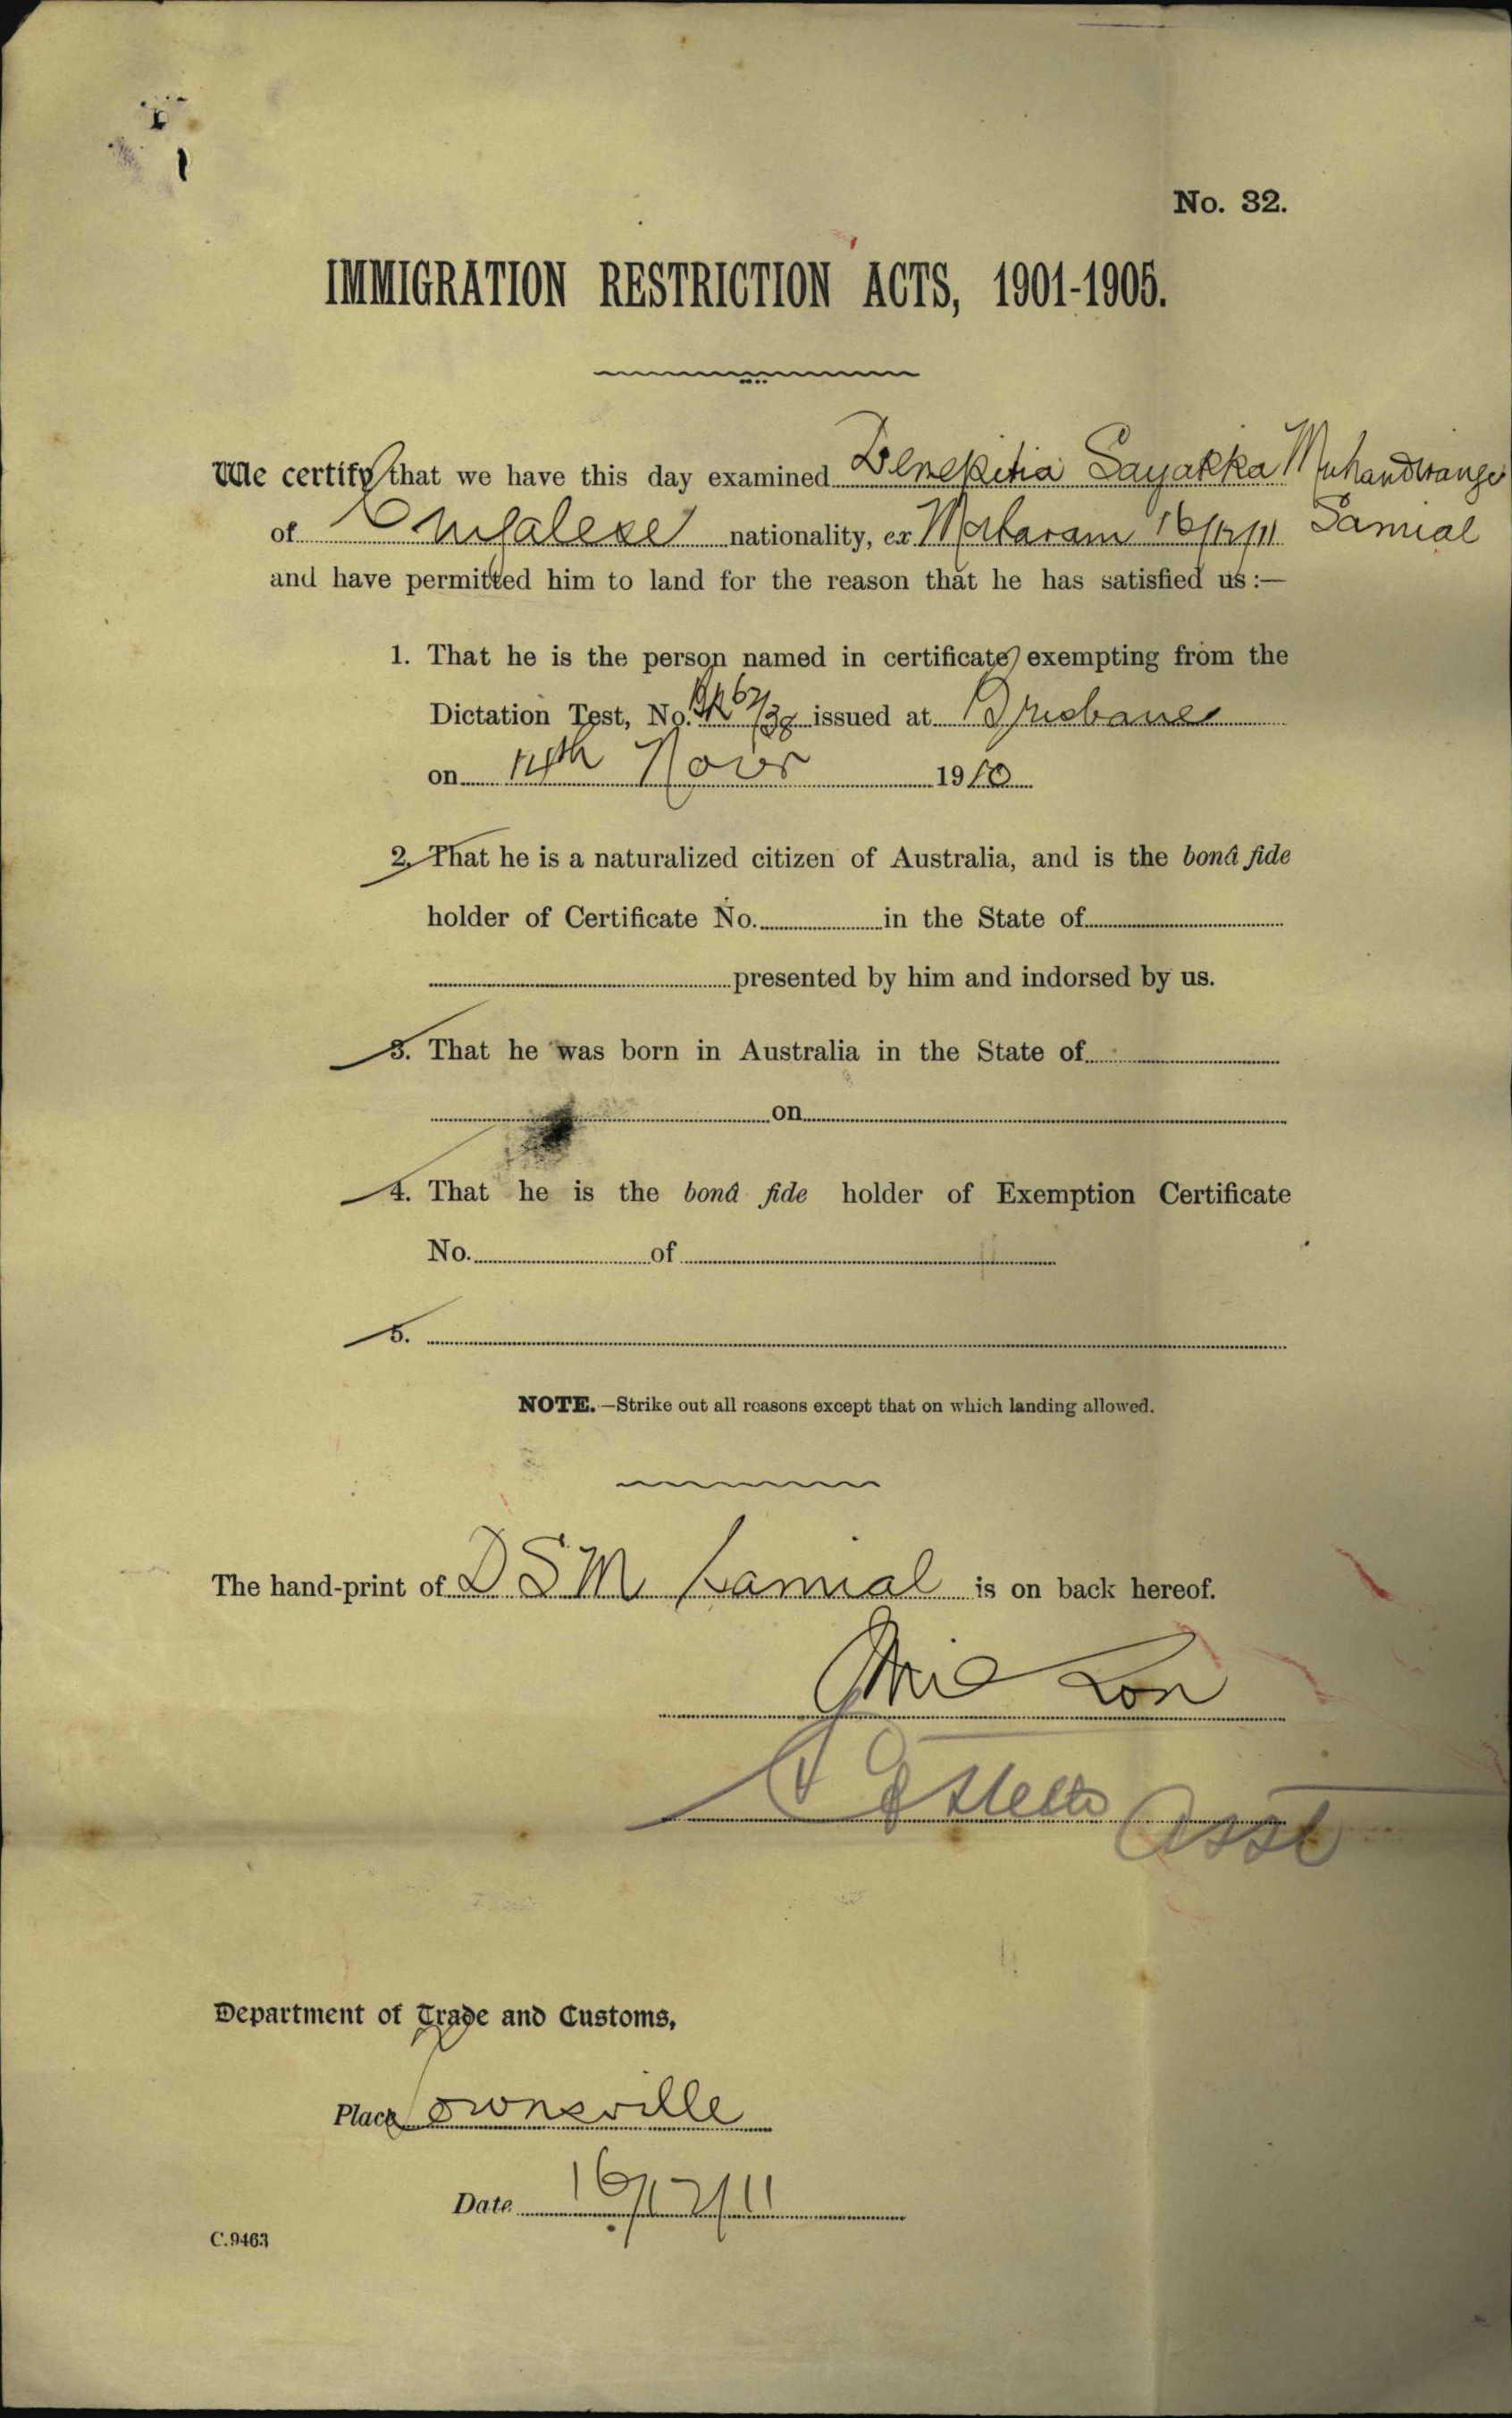 No. 32.
IMMIGRATION RESTRICTION ACTS, 1901-1905.
We certify that we have this day examined Denepitia Sayakka Muhandirange
of Cingalese nationality, ex Mataram 16/12/11 Samial
and have permitted him to land for the reason that he has satisfied us:—
1. That he is the person named in certificate exempting from the
Dictation Test, No. 67/38 issued at Brisbane
on 14th Novr 1910
2. That he is a naturalized citizen of Australia, and is the bonâ fide
holder of Certificate No. in the State of
presented by him and indorsed by us.
3. That he was born in Australia in the State of
on
4. That he is the bonâ fide holder of Exemption Certificate
No. of
5.
NOTE.—Strike out all reasons except that on which landing allowed.
The hand-print of D S M Samial is on back hereof.
Asst
Department of Trade and Customs,
Place Townsville
Date 16/12/11
C.9463